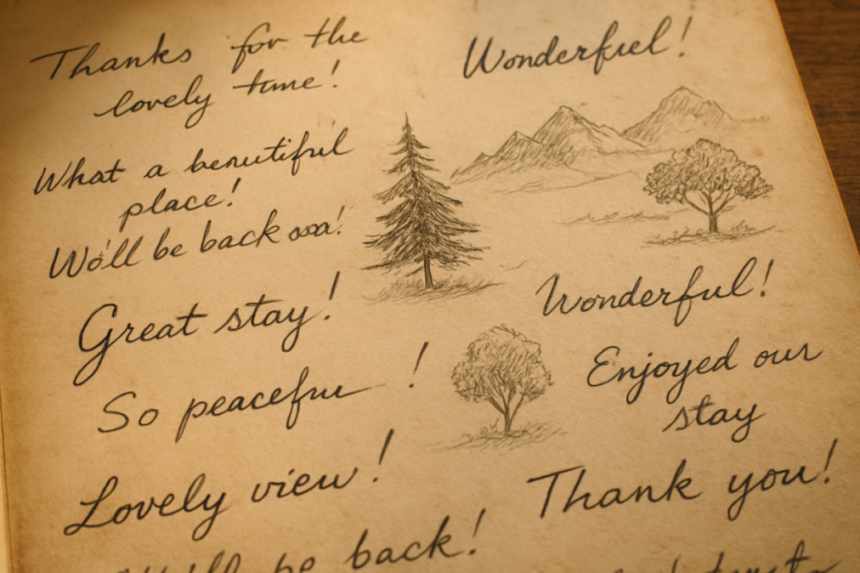 Thanks for the
lovely time!
What a beautiful
place!
We'll be back
Great stay!
So peaceful !
Lovely view!
be back!
Wonderful!
Wonderful!
Enjoyed our
stay
Thank you!